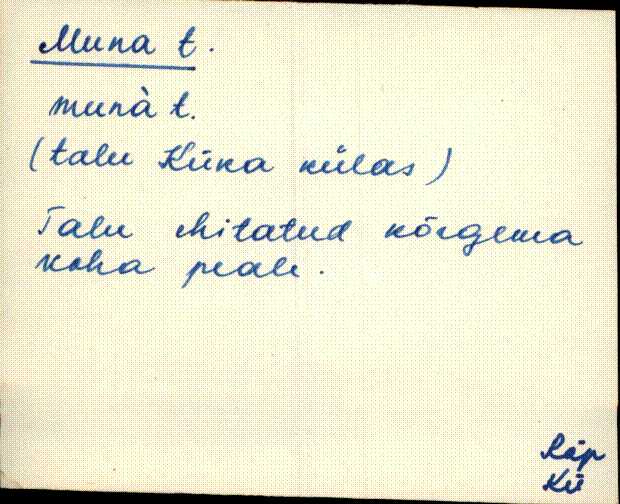 Muna t.
munà t.
(talu Küka külas)
Talu ehitatud kõrgema
koha peale.
Räp
Kü